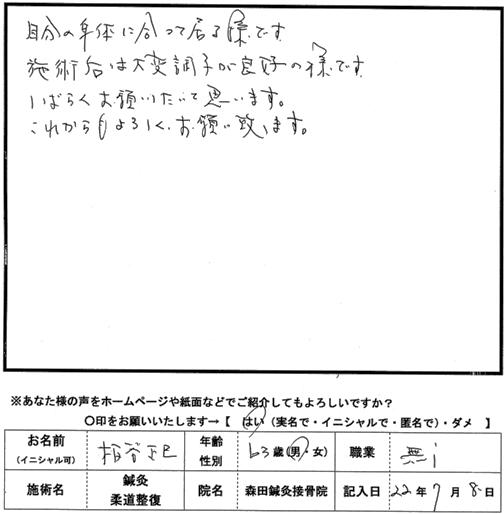 自分の身体に合って居る様です
施術后は大変調子が良好の様です
しばらくお願いしたいと思います。
これからもよろしくお願い致します。
※あなた様の声をホームページや紙面などでご紹介してもよろしいですか？
〇印をお願いいたします→【 はい（実名で・イニシャルで・匿名で）・ダメ 】
お名前（イニシャル可） 板谷正巳 年齢 性別 63歳（男・女） 職業 無し
施術名 鍼灸 柔道整復 院名 森田鍼灸接骨院 記入日 22年7月8日